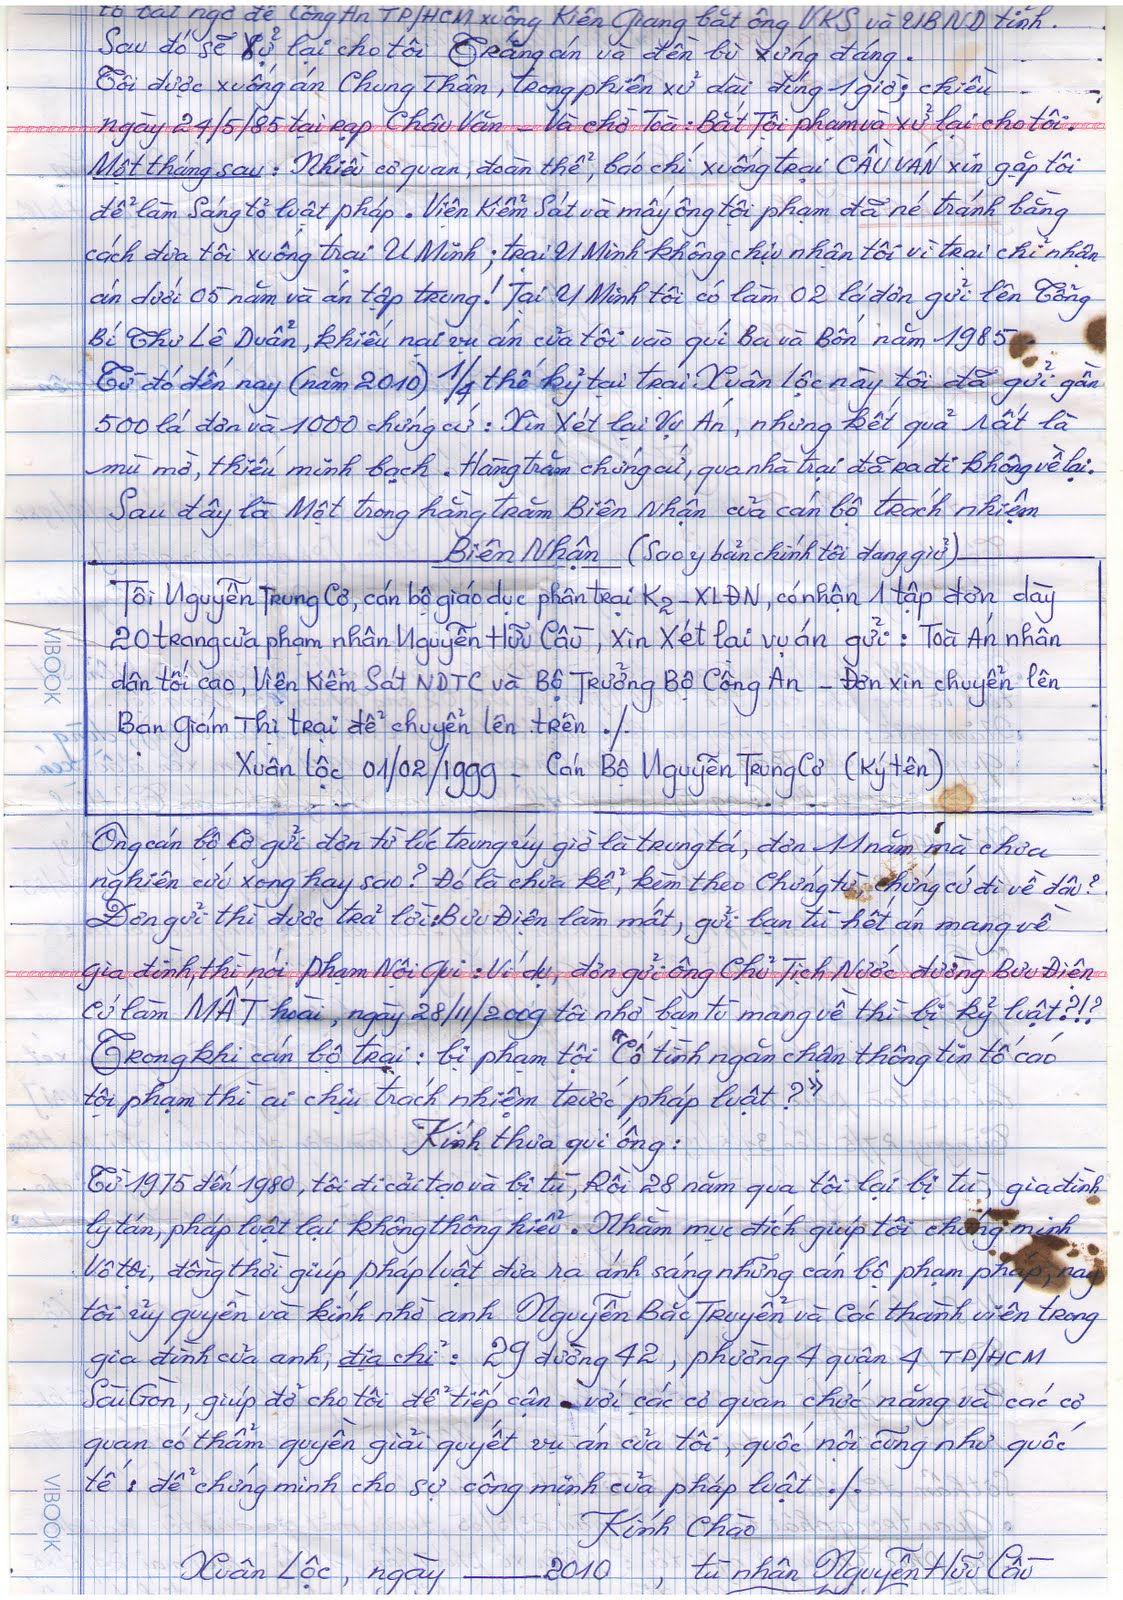 tố bất ngờ để Công An TP/HCM xuống Kiên Giang bắt ông VKS và UBND tỉnh.
Sau đó sẽ xử lại cho tôi Trắng án và đền bù xứng đáng.
Tôi được xuống án Chung Thân, trong phiên xử dài đúng 1 giờ; chiều
ngày 24/5/85 tại rạp Châu Văn – Và chờ Toà: Bắt Tội phạm và xử lại cho tôi.
Một tháng sau: Nhiều cơ quan, đoàn thể, báo chí xuống trại CẦU VÁN xin gặp tôi
để làm sáng tỏ luật pháp. Viện Kiểm Sát và mấy ông tội phạm đã né tránh bằng
cách đưa tôi xuống trại U Minh; trại U Minh không chịu nhận tôi vì trại chỉ nhận
án dưới 05 năm và án tập trung! Tại U Minh tôi có làm 02 lá đơn gửi lên Tổng
Bí Thư Lê Duẩn, khiếu nại vụ án của tôi vào quí Ba và Bốn năm 1985
Từ đó đến nay (năm 2010) 1/4 thế kỷ tại trại Xuân Lộc này tôi đã gửi gần
500 lá đơn và 1000 chứng cứ: Xin Xét lại Vụ Án, nhưng kết quả rất là
mù mờ, thiếu minh bạch. Hàng trăm chứng cứ, qua nhà trại đã ra đi không về lại.
Sau đây là Một trong hằng trăm Biên Nhận của cán bộ trách nhiệm
Biên Nhận (Sao y bản chính tôi đang giữ)
Tôi Nguyễn Trung Cơ, cán bộ giáo dục phân trại K2 – XLĐN, có nhận 1 tập đơn dày
20 trang của phạm nhân Nguyễn Hữu Cầu, Xin Xét lại vụ án gửi: Toà Án nhân
dân tối cao, Viện Kiểm Sát NDTC và Bộ Trưởng Bộ Công An – Đơn xin chuyển lên
Ban Giám Thị trại để chuyển lên trên ./.
Xuân Lộc 01/02/1999 – Cán Bộ Nguyễn Trung Cơ (Ký tên)
Ông cán bộ Cơ gửi đơn từ lúc trung úy giờ là trung tá, đơn 11 năm mà chưa
nghiên cứu xong hay sao? Đó là chưa kể, kèm theo Chứng từ, chứng cứ đi về đâu?
Đơn gửi thì được trả lời: Bưu Điện làm mất, gửi bạn tù hết án mang về
gia đình, thì nói Phạm Nội Qui: Ví dụ, đơn gửi ông Chủ Tịch Nước đường Bưu Điện
cứ làm MẤT hoài, ngày 28/11/2009 tôi nhờ bạn tù mang về thì bị kỷ luật?!?
Trong khi cán bộ trại: bị phạm tội "Cố tình ngăn chặn thông tin tố cáo
tội phạm thì ai chịu trách nhiệm trước pháp luật?"
Kính thưa quí ông:
Từ 1975 đến 1980, tôi đi cải tạo và bị tù, Rồi 28 năm qua tôi lại bị tù, gia đình
ly tán, pháp luật lại không thông hiểu. Nhằm mục đích giúp tôi chứng minh
Vô tội, đồng thời giúp pháp luật đưa ra ánh sáng những cán bộ phạm pháp, nay
tôi ủy quyền và kính nhờ anh Nguyễn Bắc Truyển và Các thành viên trong
gia đình của anh, địa chỉ: 29 đường 42, phường 4 quận 4 TP/HCM
Sài Gòn, giúp đỡ cho tôi để tiếp cận với các cơ quan chức năng và các cơ
quan có thẩm quyền giải quyết vụ án của tôi, quốc nội cũng như quốc
tế: để chứng minh cho sự công minh của pháp luật ./.
Kính Chào
Xuân Lộc, ngày ——2010, tù nhân Nguyễn Hữu Cầu
VIBOOK
VIBOOK